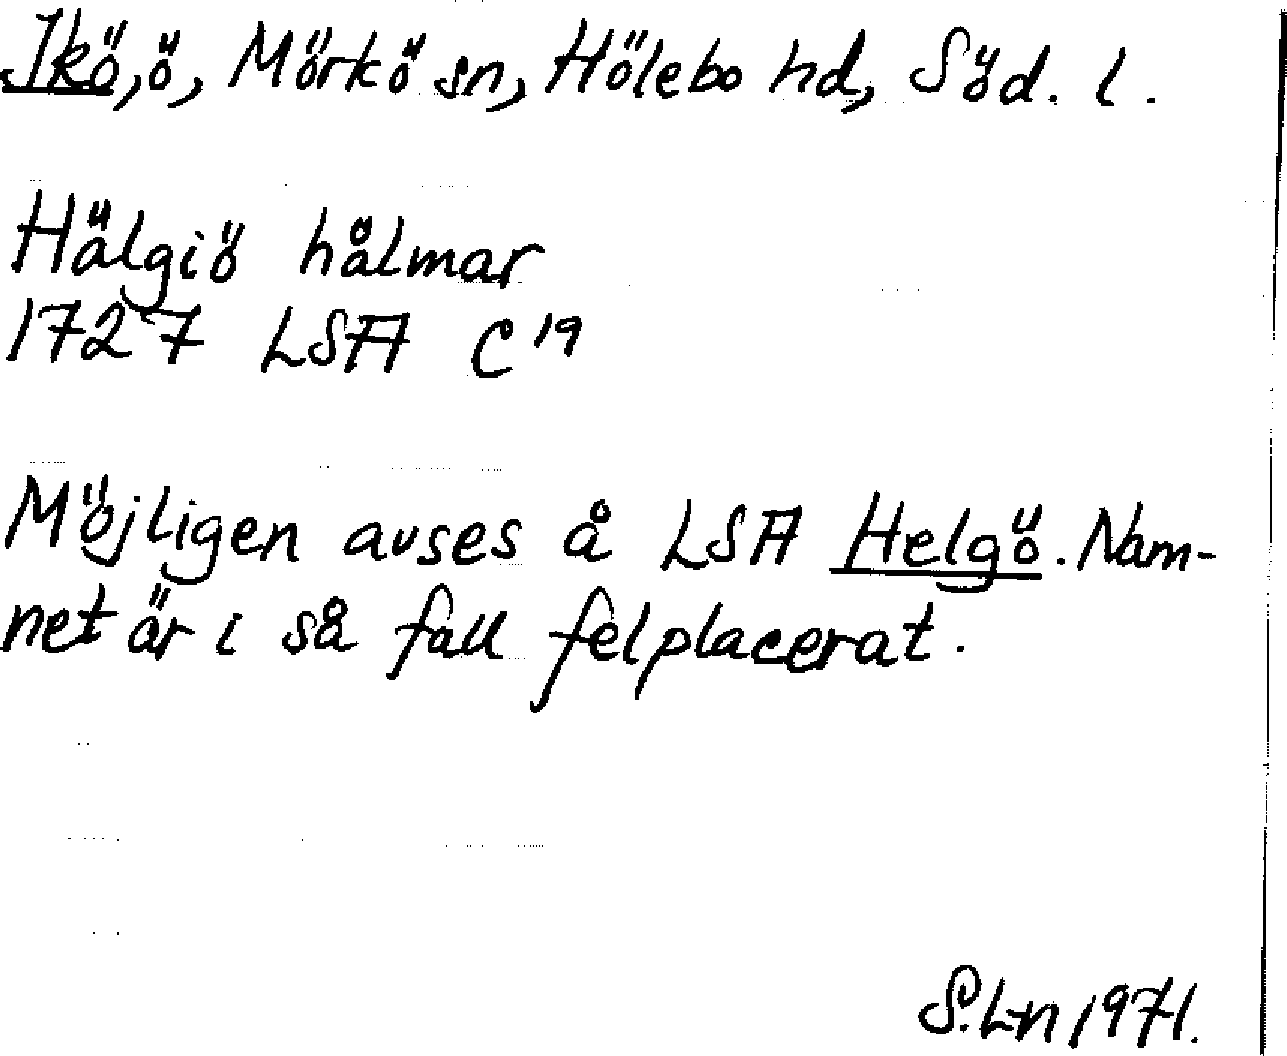 Ikö, ö, Mörkö sn, Hölebo hd, Söd. l.
Hälgiö hålmar
1727 LSA C 19
Möjligen avses å LSA Helgö. Nam-
net är i så fall felplacerat.
S.L-n 1971.